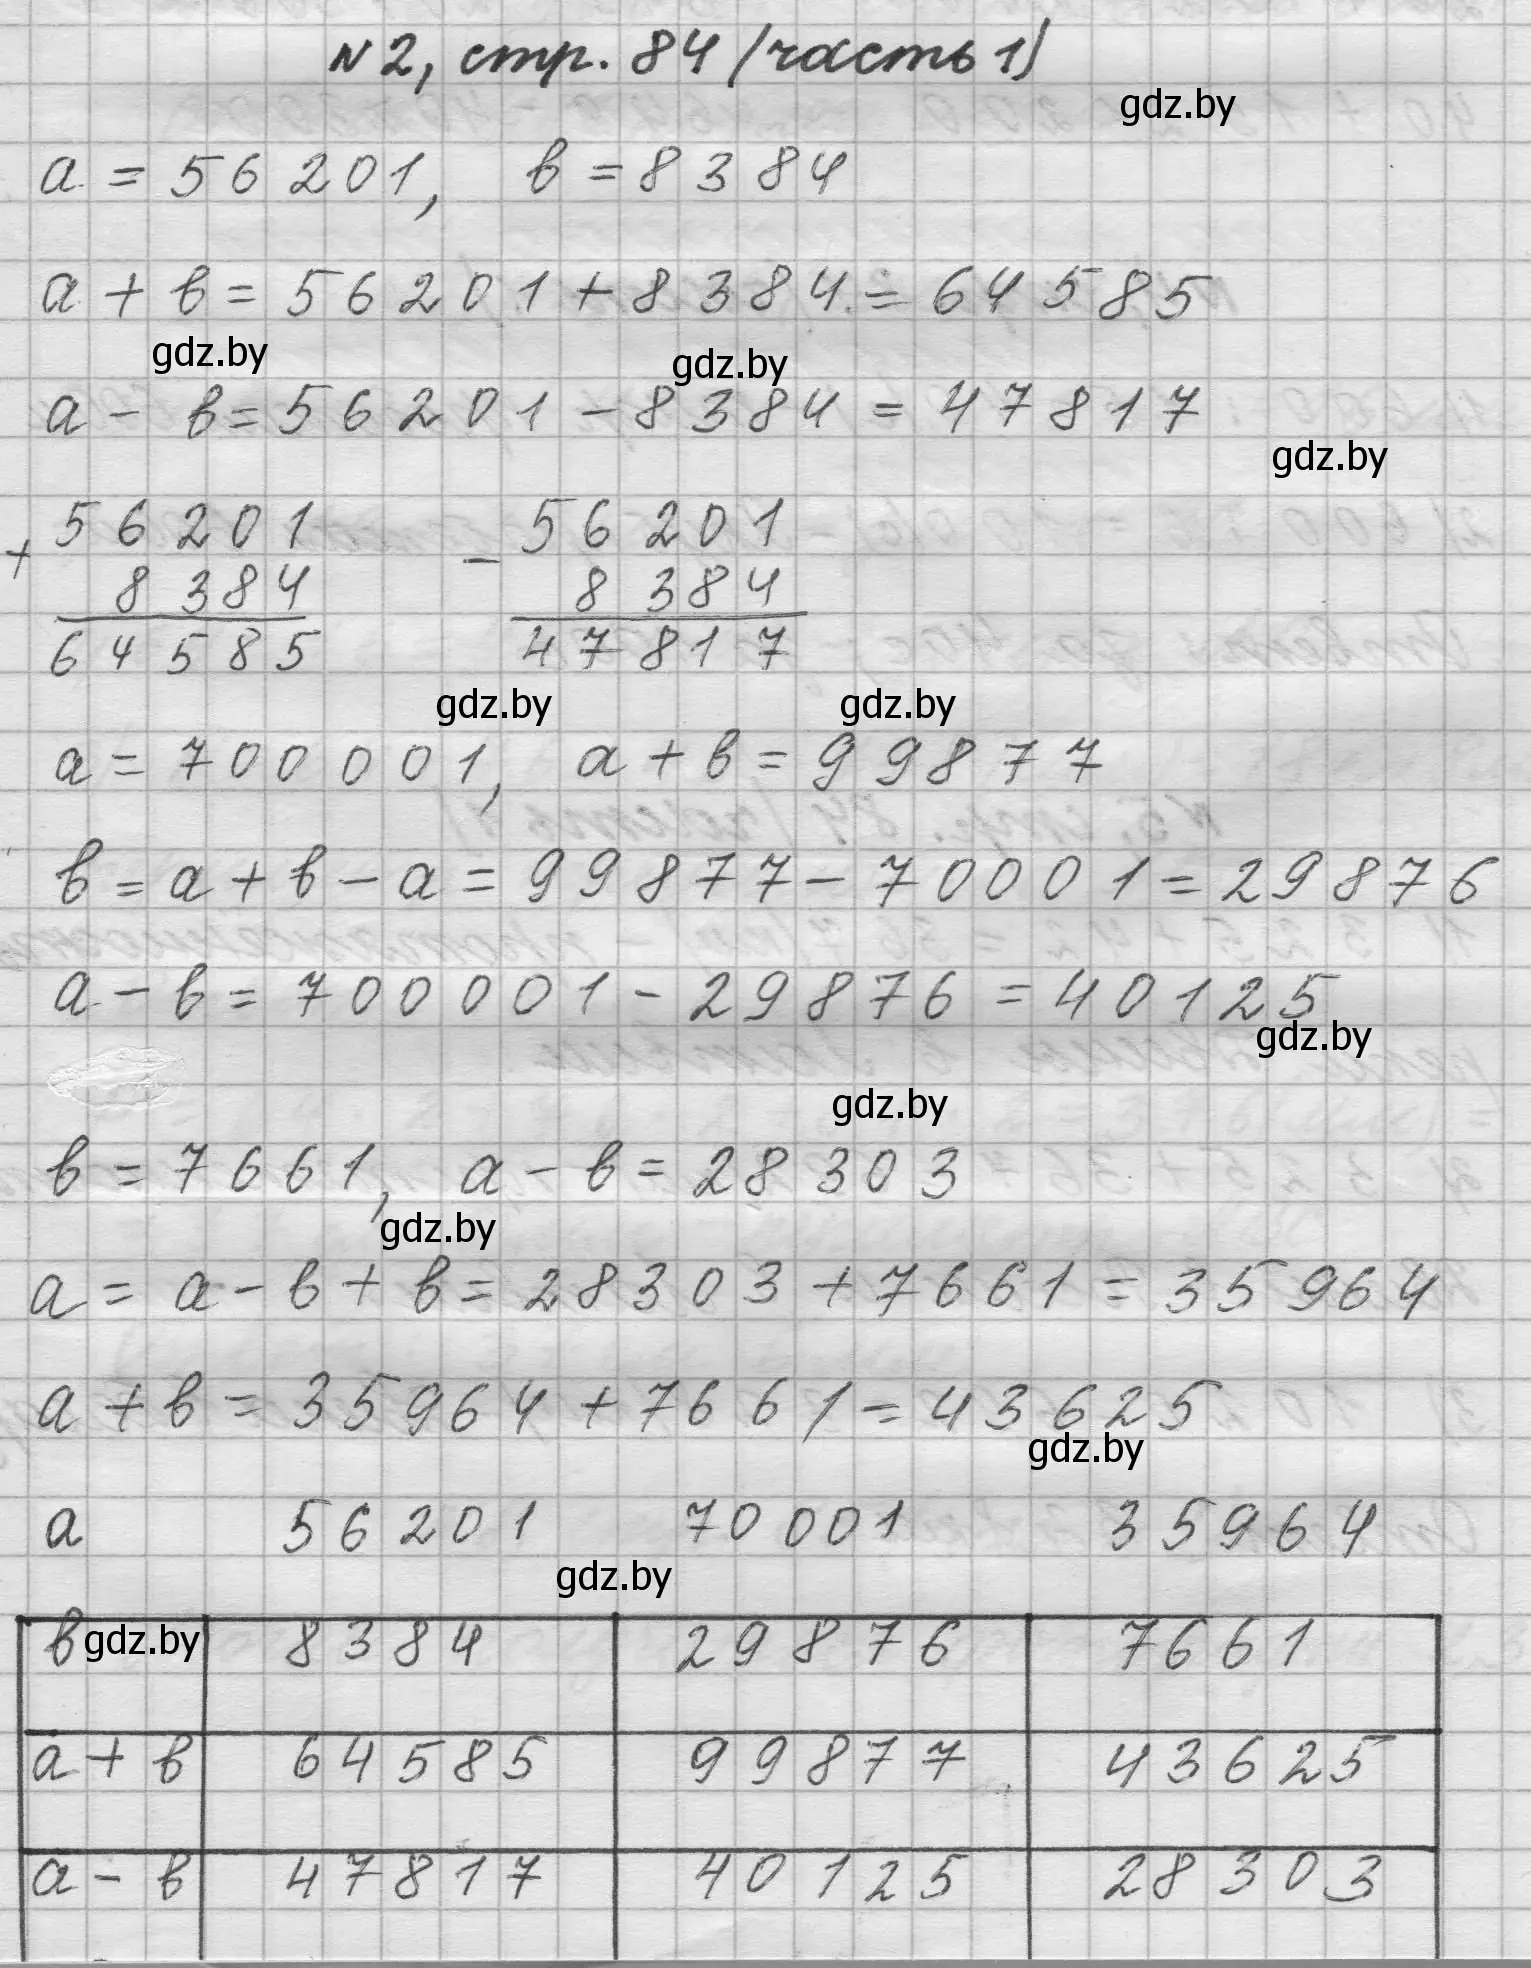 №2, стр. 84 (часть 1)
gdz.by
a = 56 201, в = 8 384
a + в = 56 201 + 8 384 = 64 585
gdz.by gdz.by
a - в = 56 201 - 8 384 = 47 817
gdz.by
+ 56 201 - 56 201
8 384 8 384
64 585 47 817
gdz.by gdz.by
a = 700 001, a + в = 99 877
в = a + в - a = 99 877 - 70 001 = 29 876
a - в = 700 001 - 29 876 = 40 125
gdz.by
gdz.by
в = 7 661, a - в = 28 303
gdz.by
a = a - в + в = 28 303 + 7 661 = 35 964
a + в = 35 964 + 7 661 = 43 625
gdz.by
a 56 201 70 001 35 964
gdz.by
в gdz.by 8 384 29 876 7 661
a + в 64 585 99 877 43 625
a - в 47 817 40 125 28 303